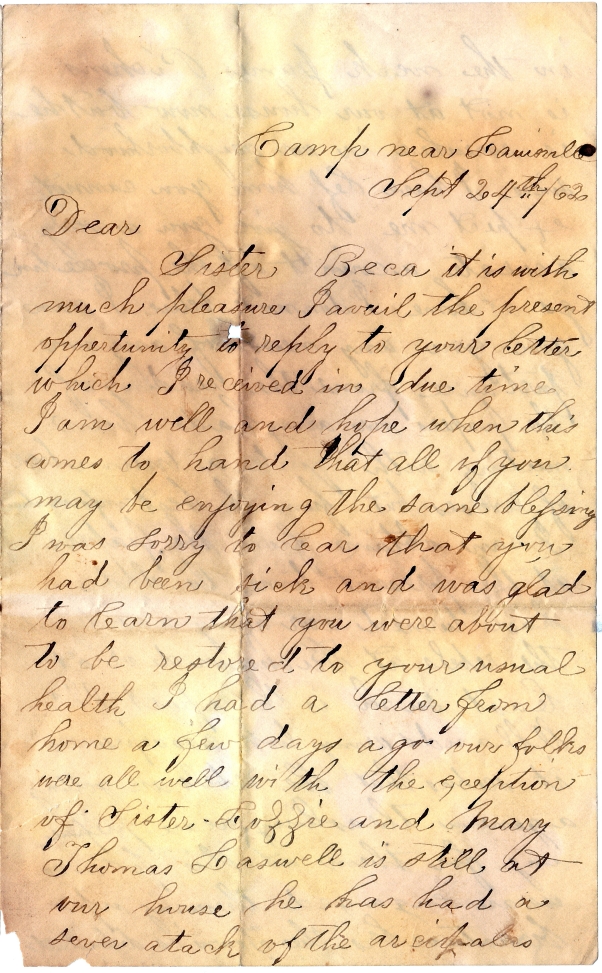 Camp near
Sept 24th /62
Dear
Sister Beca it is with
much pleasure I avail the present
opportunity to reply to your letter
which I received in due time
I am well and hope when this
comes to hand that all of you
may be enjoying the same blessing
I was sorry to lear that you
had been sick and was glad
to learn that you were about
to be restored to your usual
health I had a letter from
home a few days ago our folks
were all well with the exception
of Sister Lozzie and Mary
Thomas Laswell is still at
our house he has had a
sever atack of the